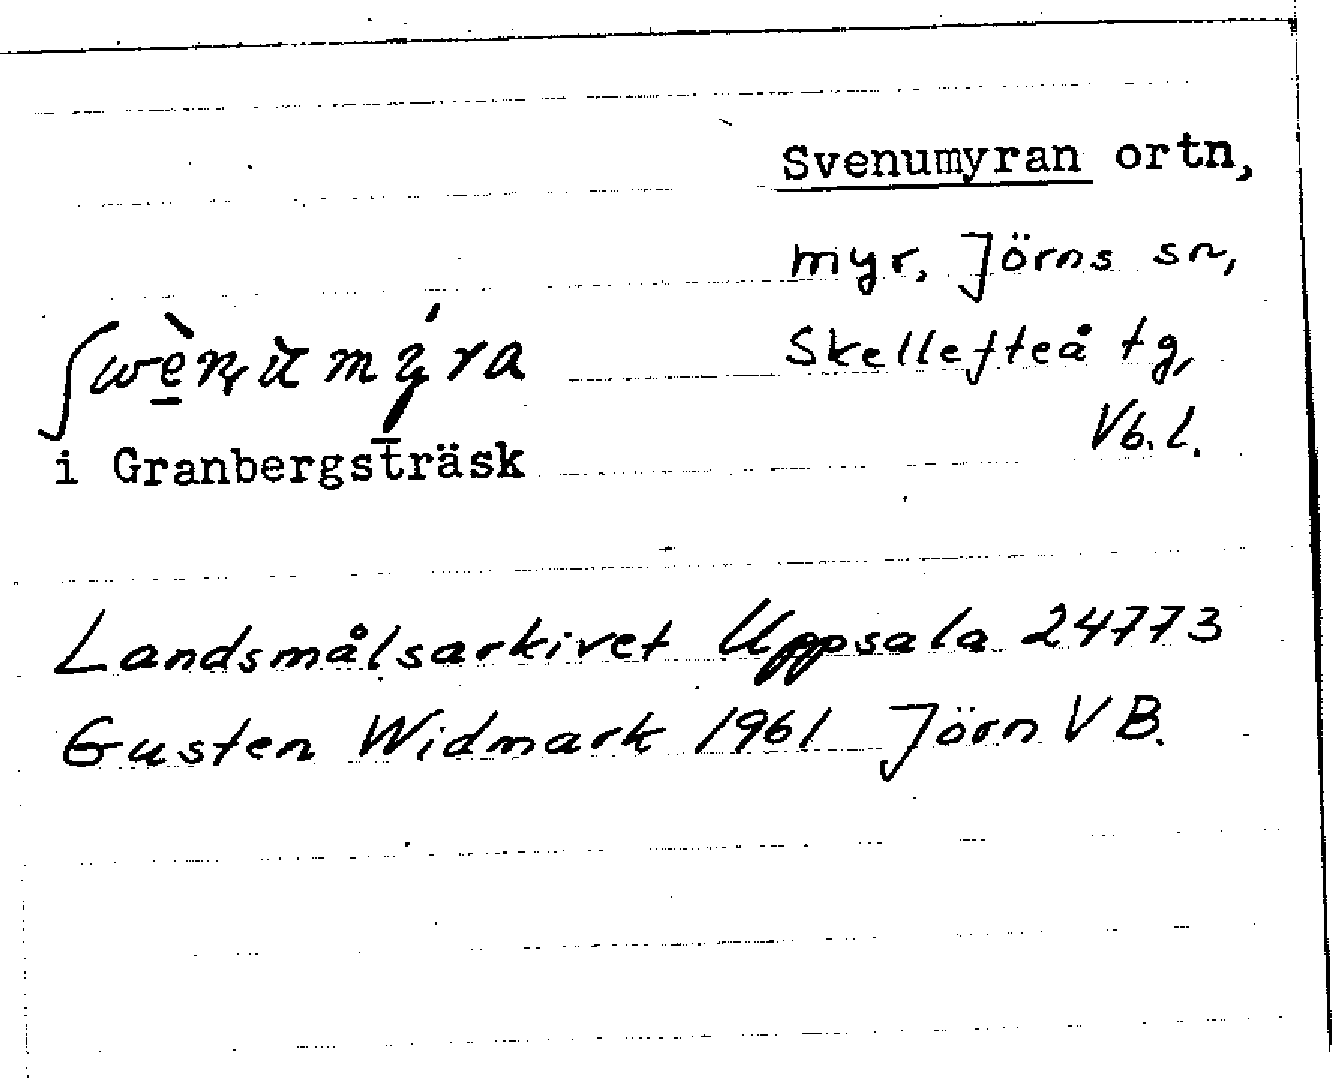 Svenumyran ortn,
myr, Jörns sn,
Skellefteå tg,
Vb. l.
i Granbergsträsk
Landsmålsarkivet Uppsala 24773
Gusten Widmark 1961 Jörn VB.